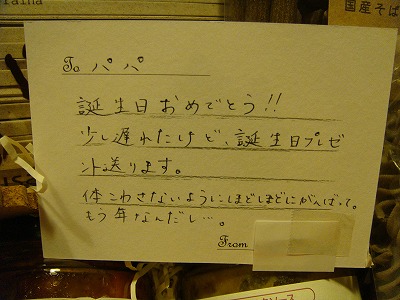 raina
国産そば
To パパ
誕生日おめでとう!!
少し遅れたけど、誕生日プレゼ
ント送ります。
体こわさないようにほどほどにがんばって。
もう年なんだし…。
From